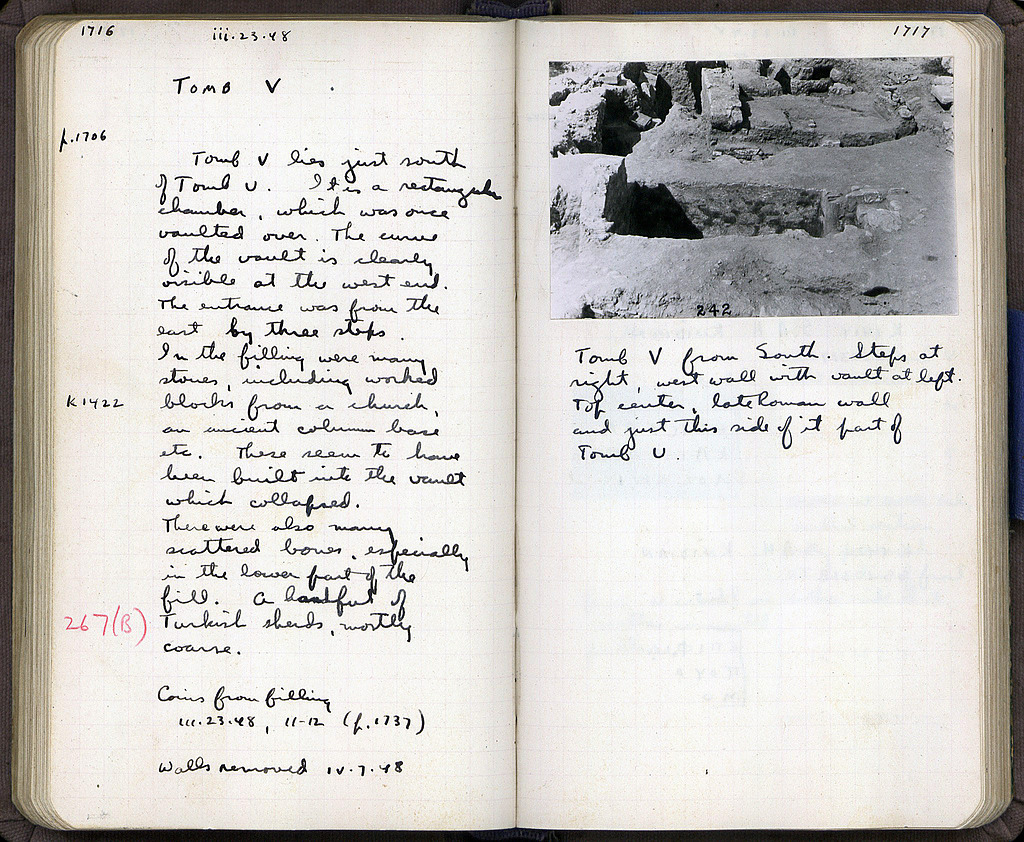 1716
iii.23.48
TOMB V
p.1706
Tomb V lies just south
of Tomb U. It is a rectangular
chamber, which was once
vaulted over. The curve
of the vault is clearly
visible at the west end.
The entrance was from the
east by three steps.
In the filling were many
stones, including worked
K 1422
blocks from a church,
an ancient column base
etc. These seem to have
been built into the vault
which collapsed.
There were also many
scattered bones, especially
in the lower part of the
fill. A handful of
267(B)
Turkish sherds, mostly
coarse.
Coins from filling
iii.23.48, 11-12 (p.1737)
Walls removed iv.7.48
1717
242
Tomb V from South. Steps at
right, west wall with vault at left.
Top center, late Roman wall
and just this side of it part of
Tomb U.